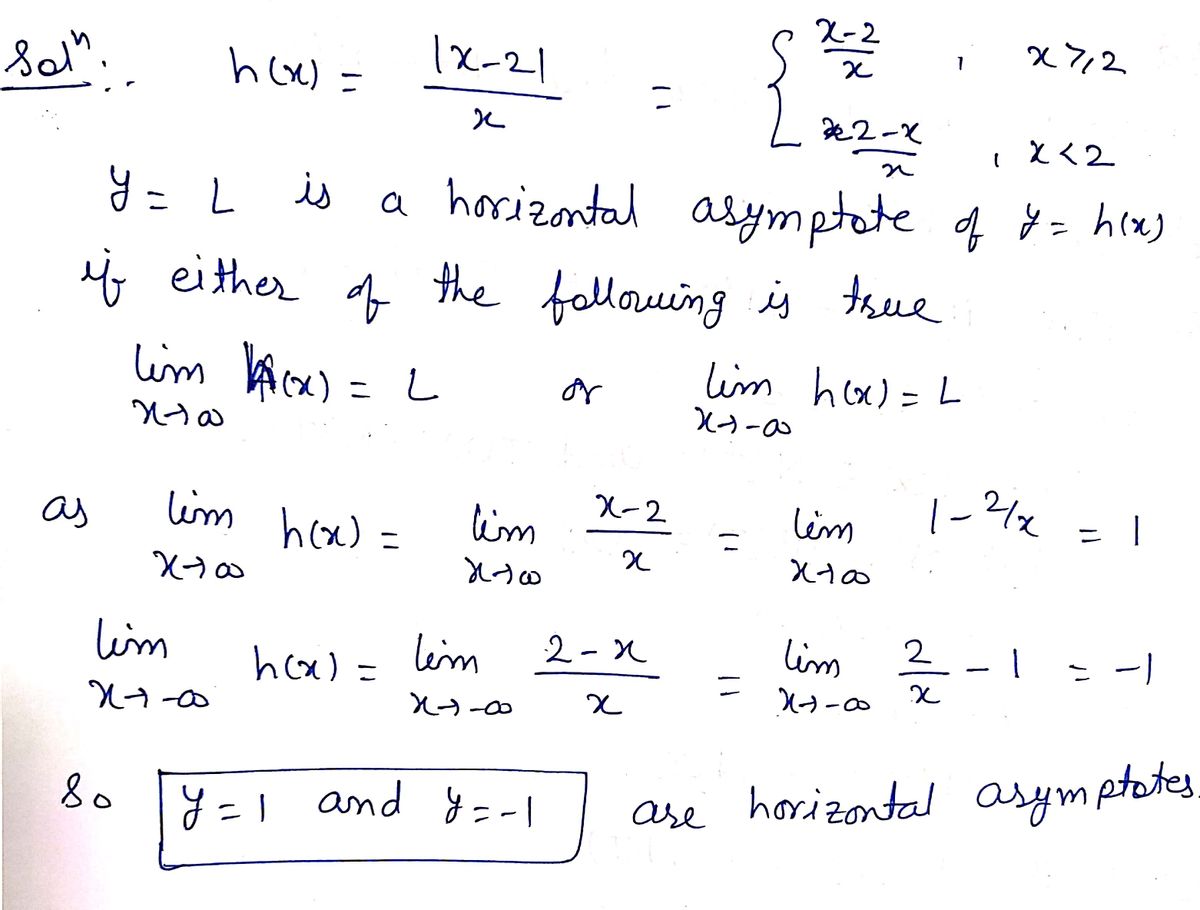 Solⁿ:- h(x) = |x-2| / x = { x-2 / x , x ≥ 2
2-x / x , x < 2
y = L is a horizontal asymptote of y = h(x)
if either of the following is true
lim x→∞ h(x) = L or lim x→-∞ h(x) = L
as lim x→∞ h(x) = lim x→∞ x-2 / x = lim x→∞ 1 - 2/x = 1
lim x→-∞ h(x) = lim x→-∞ 2-x / x = lim x→-∞ 2/x - 1 = -1
So y = 1 and y = -1 are horizontal asymptotes.